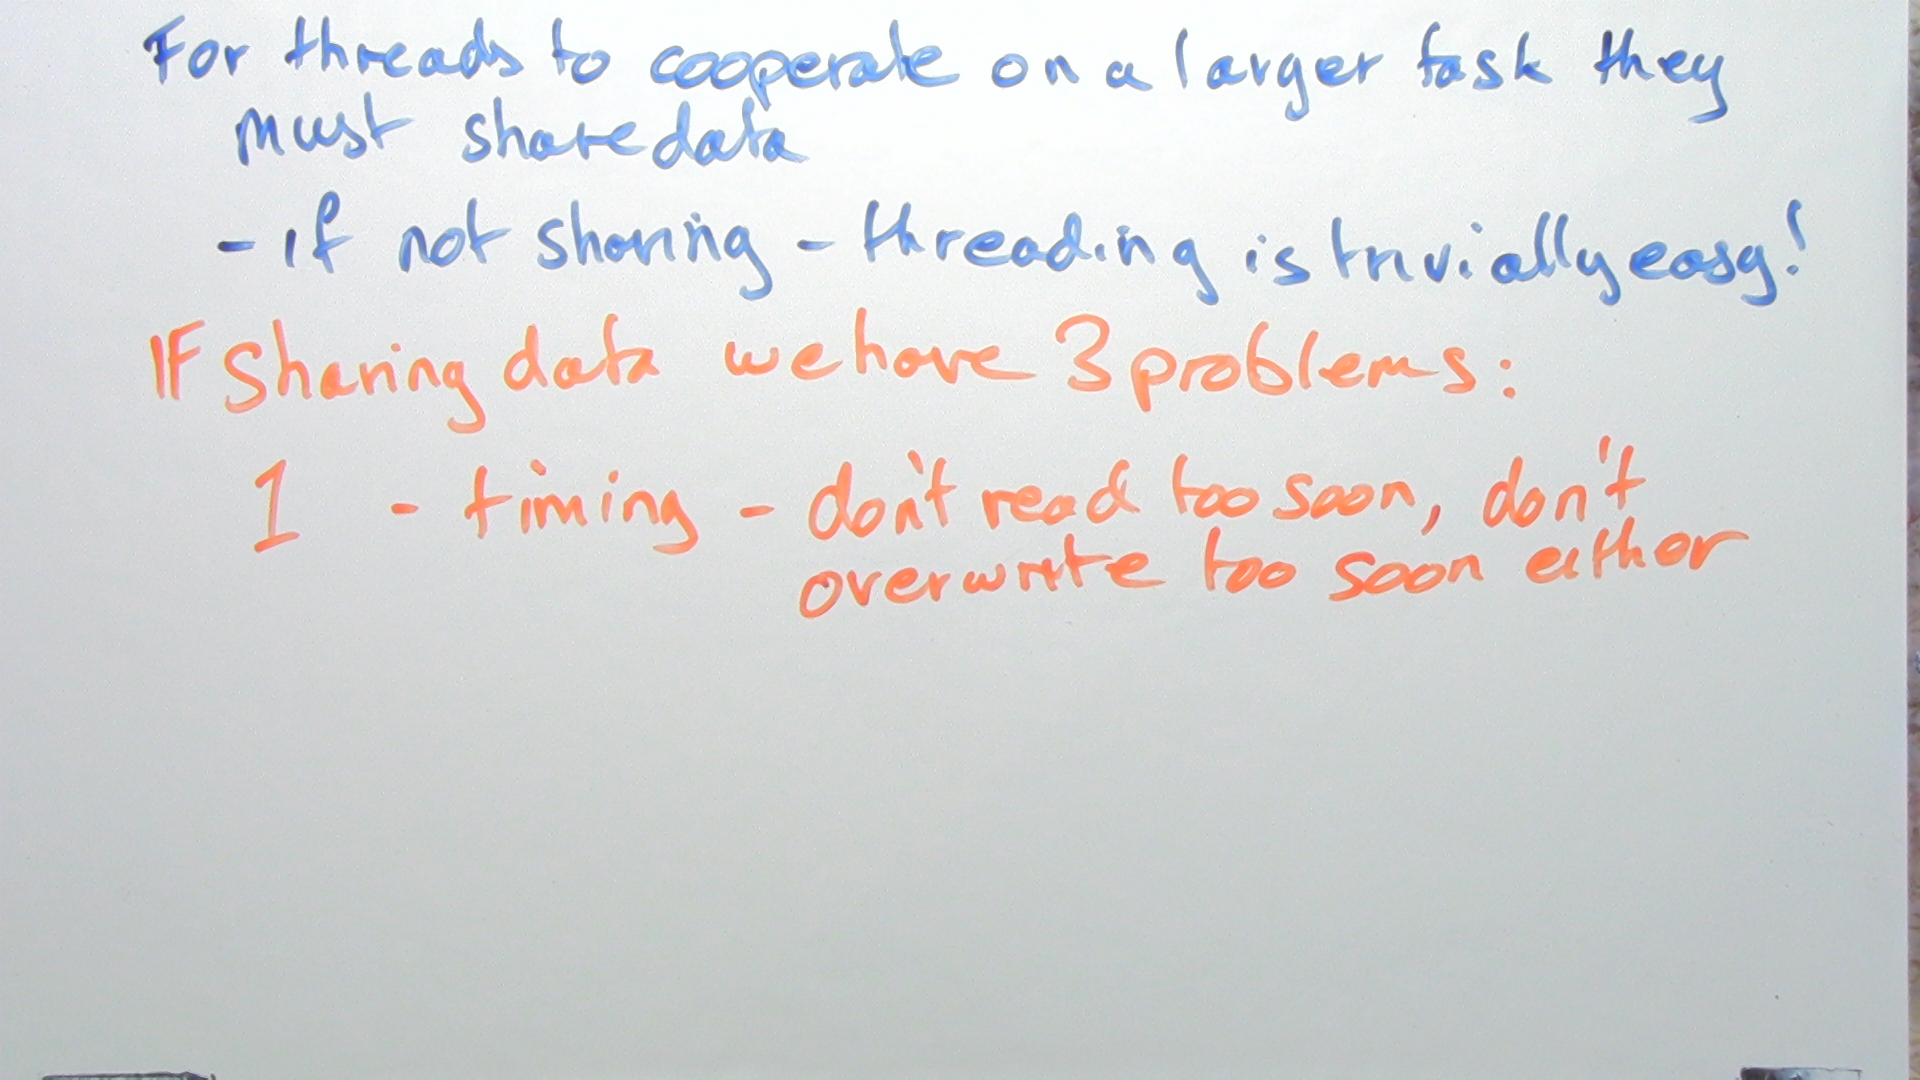 For threads to cooperate on a larger task they
must share data
- if not sharing - threading is trivially easy!
IF Sharing data we have 3 problems:
1 - timing - don't read too soon, don't
overwrite too soon either